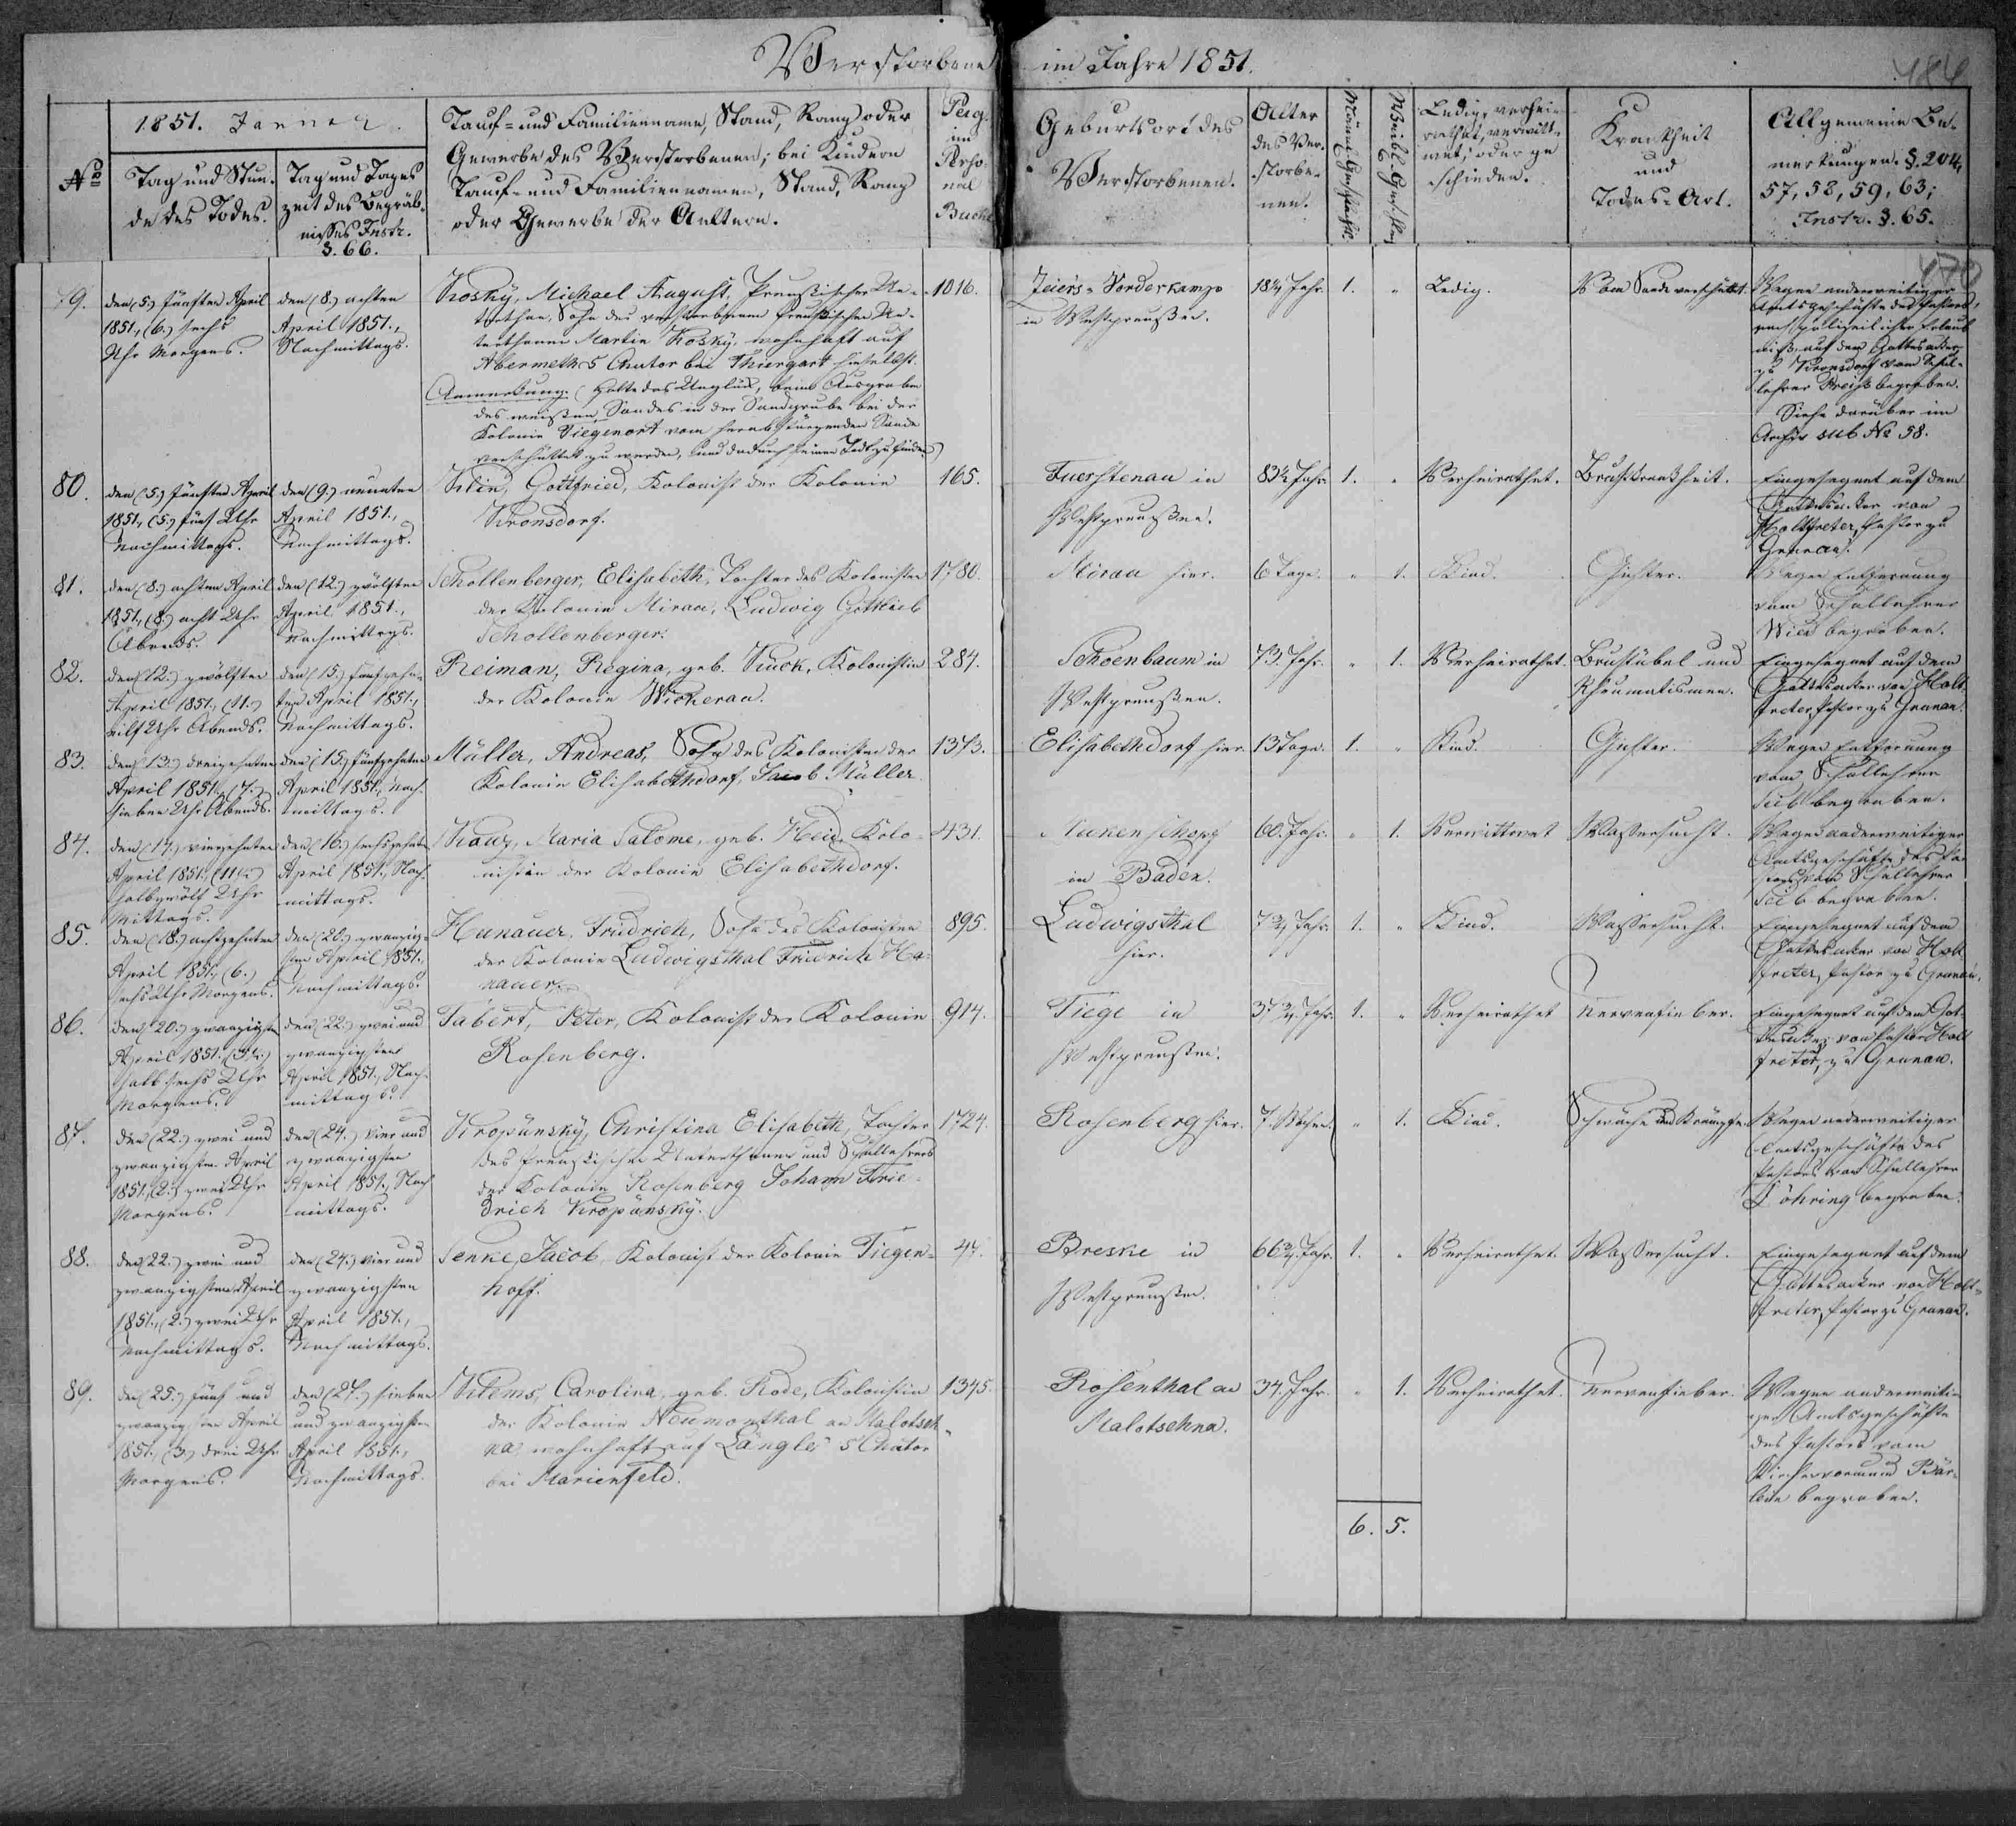 Verstorbene im Jahre 1851.
484
No
1851. Januar.
Tag und Stun-
de des Todes.
Tag und Tages
zeit des Begräb-
nisses Instr.
§. 66.
Tauf- und Familienname, Stand, Rang oder
Gewerbe des Verstorbenen; bei Kindern
Tauf- und Familiennamen, Stand, Rang
oder Gewerbe der Aeltern.
Pag.
im
Perso
nal
Buche
Geburtsort des
Verstorbenen.
Alter
des Ver-
storbe-
nen.
Männl. Geschlecht.
Weibl. Geschl.
Ledig, verhei-
rathet, verwitt-
wet, oder ge
schieden.
Krankheit
und
Todes-Art.
Allgemeine Be-
merkungen. §. 204,
57, 58, 59, 63;
Instr. §. 65.
470
79.
den (5.) fünften April
1851, (6.) sechs
Uhr Morgens.
den (8.) achten
April 1851.,
Nachmittags.
Kosky, Michael August, Preußischer Un-
terthan, Sohn des verstorbenen Preußischen Un-
terthanen Martin Kosky, wohnhaft auf
Abermeths Chutor bei Thiergart hieselbst.
Anmerkung. (Hatte das Unglück, beim Ausgraben
des weißen Sandes in der Sandgrube bei der
Kolonie Tiegenort vom herabstürzenden Sande
verschüttet zu werden, und dadurch seinen Tod zu finden)
1016.
Zeiers-Vorderkamp
in Westpreußen.
18¼ Jahr.
1.
"
Ledig.
Vom Sande verschüttet.
Wegen anderweitiger
Amtsgeschäfte des Pastors,
nach polizeilicher Erlaub
niß, auf dem Gottesacker
zu Kronsdorf vom Schul-
lehrer Preiß begraben.
Siehe darüber im
Archiv sub No 58.
80.
den (5.) fünften April
1851., (5.) fünf Uhr
Nachmittags.
den (9.) neunten
April 1851.,
Nachmittags.
Klein, Gottfried, Kolonist der Kolonie
Kronsdorf.
165.
Fuerstenau in
Westpreußen.
83½ Jahr.
1.
"
Verheirathet.
Brustkrankheit.
Eingesegnet auf dem
Gottesacker von
Holtfreter, Pastor zu
Grunau.
81.
den (8.) achten April
1851., (8.) acht Uhr
Abends.
den (12.) zwölften
April 1851.,
Nachmittags.
Schollenberger, Elisabeth, Tochter des Kolonisten
der Kolonie Mirau, Ludwig Gottlieb
Schollenberger.
1780.
Mirau hier.
6 Tage.
"
1.
Kind.
Gichter.
Wegen Entfernung
vom Schullehrer
Wied begraben.
82.
den (12.) zwölften
April 1851, (11.)
eilf Uhr Abends.
den (15.) funfzehn-
ten April 1851.,
Nachmittags.
Reiman, Regina, geb. Kuck, Kolonistin
der Kolonie Wickerau.
284.
Schoenbaum in
Westpreußen.
73. Jahr.
"
1.
Verheirathet.
Brustübel und
Rheumatismen.
Eingesegnet auf dem
Gottesacker von Holt
freter, Pastor zu Grunau.
83.
den (13.) dreizehnten
April 1851., (7.)
sieben Uhr Abends.
den (15.) fünfzehnten
April 1851., Nach-
mittags.
Müller, Andreas, Sohn des Kolonisten der
Kolonie Elisabethdorf, Jacob Müller.
1373.
Elisabethdorf hier.
13 Tage.
1.
"
Kind.
Gichter.
Wegen Entfernung
vom Schullehrer
begraben.
84.
den (14.) vierzehnten
April 1851., (11½.)
halbzwölf Uhr
Mittags.
den (16.) sechszehnten
April 1851., Nach-
mittags.
Maria Salome, geb. Heid, Kolo-
nistin der Kolonie Elisabethdorf.
431.
in Baden.
60. Jahr.
"
1.
Verwittwet
Wassersucht.
Wegen anderweitiger
Amtsgeschäfte des Pa-
stors vom Schullehrer
begraben.
85.
den (18.) achtzehnten
April 1851., (6.)
sechs Uhr Morgens.
den (20.) zwanzig-
sten April 1851.,
Nachmittags.
Hanauer, Friedrich, Sohn des Kolonisten
der Kolonie Ludwigsthal Friedrich Ha-
nauer.
895.
Ludwigsthal
hier.
7¾ Jahr.
1.
"
Kind.
Wassersucht.
Eingesegnet auf dem
Gottesacker von Holt
freter, Pastor zu Grunau.
86.
den (20.) zwanzigsten
April 1851. (5½.)
halb sechs Uhr
Morgens.
den (22.) zwei und
zwanzigsten
April 1851., Nach-
mittags.
Tabert, Peter, Kolonist der Kolonie
Rosenberg.
914.
Tiege in
Westpreußen.
37¾ Jahr.
1.
"
Verheirathet
Nervenfieber.
Eingesegnet auf dem Got-
tesacker von Pastor Holt
freter, zu Grunau.
87.
den (22.) zwei und
zwanzigsten April
1851., (2.) zwei Uhr
Morgens.
den (24.) vier und
zwanzigsten
April 1851., Nach
mittags.
Kropünsky, Christina Elisabeth, Tochter
des Preußischen Unterthanen und Schullehrers
der Kolonie Rosenberg Johann Frie-
drich Kropünsky.
1724.
Rosenberg hier.
7. Wochen.
"
1.
Kind.
Schwäche und Krämpfe.
Wegen anderweitiger
Amtsgeschäfte des
Pastors vom Schullehrer
Döhring begraben.
88.
den (22.) zwei und
zwanzigsten April
1851., (2.) zwei Uhr
Nachmittags.
den (24.) vier und
zwanzigsten
April 1851.,
Nachmittags.
Senke, Jacob, Kolonist der Kolonie Tiegen-
hoff.
47.
Breske in
Westpreußen.
66¾ Jahr.
1.
"
Verheirathet.
Wassersucht.
Eingesegnet auf dem
Gottesacker von Holt-
freter, Pastor zu Grunau.
89.
den (25.) fünf und
zwanzigsten April
1851., (3.) drei Uhr
Morgens.
den (27.) sieben
und zwanzigsten
April 1851.,
Nachmittags.
Klems, Carolina, geb. Rode, Kolonistin
der Kolonie Neumonthal an Malotsch-
na, wohnhaft auf Länglers Chutor
bei Marienfeld.
1345.
Rosenthal an
Malotschna.
34. Jahr.
"
1.
Verheirathet.
Nervenfieber.
Wegen anderweiti-
ger Amtsgeschäfte
des Pastors vom
Kirchenvormund Bär-
lein begraben.
6. 5.